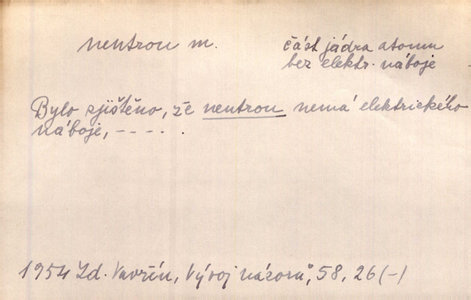 neutron m.
část jádra atomu
bez elektr. náboje
Bylo zjištěno, že neutron nemá elektrického
náboje, - - - - .
1954 Zd. Vavřín, Vývoj názorů, 58, 26 (-)